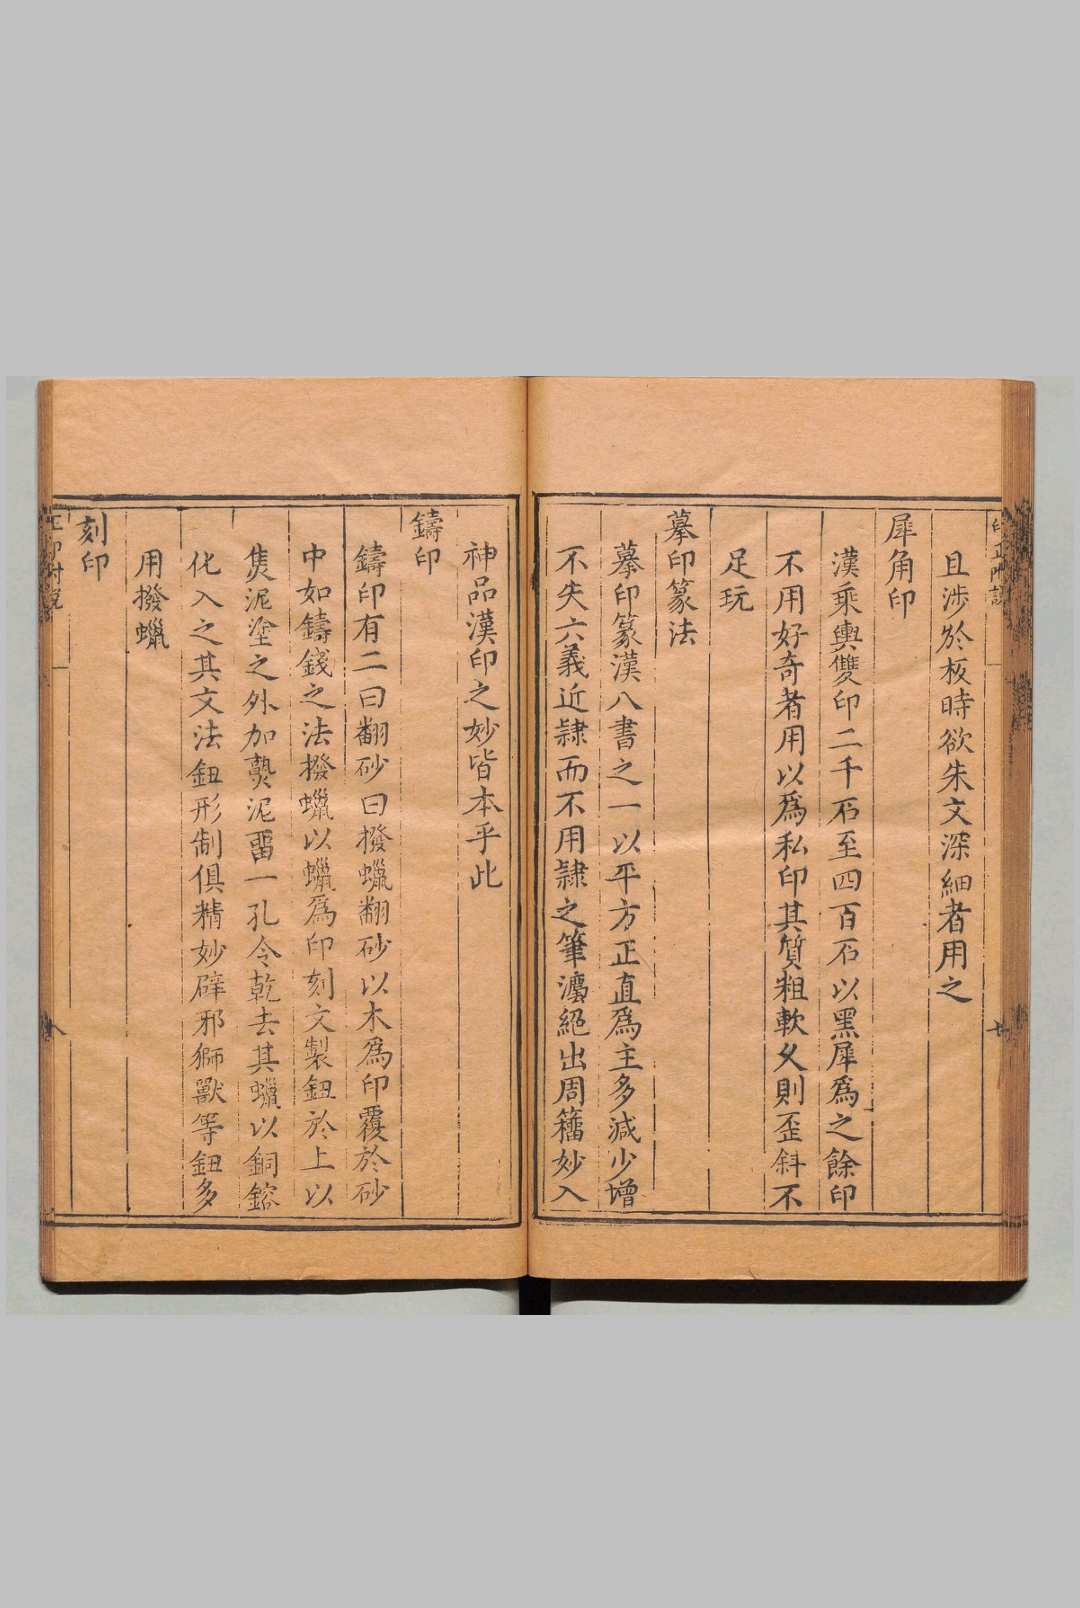 且涉於板時欲朱文深細者用之
犀角印
漢乘輿雙印二千石至四百石以黑犀爲之餘印
不用好奇者用以爲私印其質粗軟久則歪斜不
足玩
摹印篆法
摹印篆漢八書之一以平方正直爲主多減少增
不失六義近隷而不用隷之筆灋絕出周籀妙入
神品漢印之妙皆本乎此
鑄印
鑄印有二曰翻砂曰撥蠟翻砂以木爲印覆於砂
中如鑄錢之法撥蠟以蠟爲印刻文製鈕於上以
焦泥塗之外加熟泥畱一孔令乾去其蠟以銅鎔
化入之其文法鈕形制俱精妙辟邪獅獸等鈕多
用撥蠟
刻印